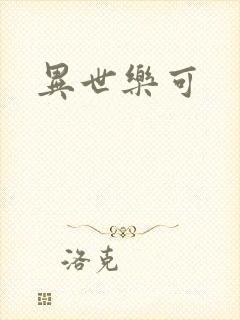 異世樂可
洛克